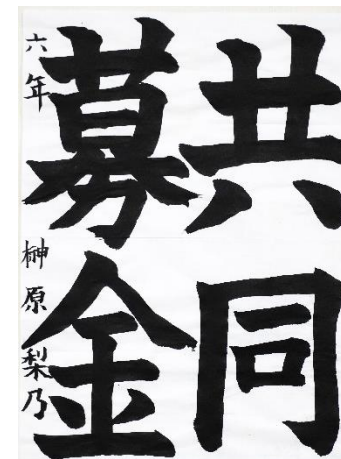 共同
募金
六年 榊原梨乃